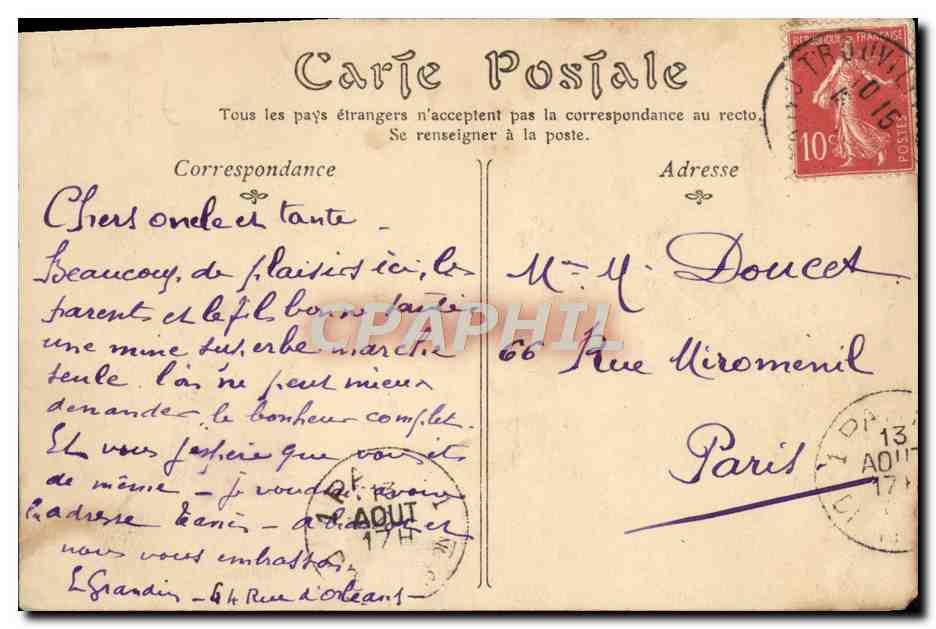 Carte Postale
Tous les pays étrangers n'acceptent pas la correspondance au recto.
Se renseigner à la poste.
Correspondance
Adresse
REPUBLIQUE FRANÇAISE
10c
POSTES
TROUVILLE
Chers oncle et tante
Beaucoup de plaisirs ici, les
parents et le fils bonne santé
une mine superbe marche
seule l'on ne peut mieux
demander le bonheur complet.
Et vous j'espère que vous êtes
de même - je voudrai avoir
adresse et
nous vous embrassons
Grandin - 64 Rue d'Orléans -
Mr M. Doucet
66 Rue Miromenil
Paris
13
AOUT
17H
13
AOUT
17H
CPAPHIL